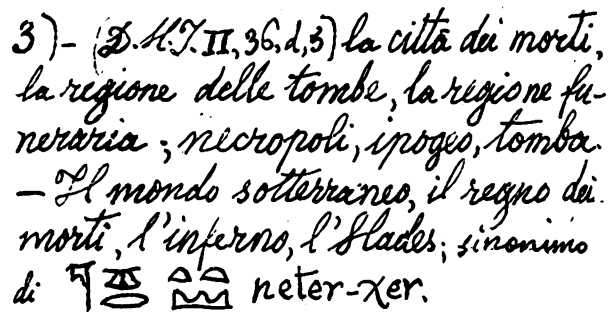 3)-(D.H.I.II,36,d,3) la città dei morti,
la regione delle tombe, la regione fu-
neraria; necropoli, ipogeo, tomba.
– Il mondo sotterraneo, il regno dei
morti, l'inferno, l'Hades; sinonimo
di neter-χer.